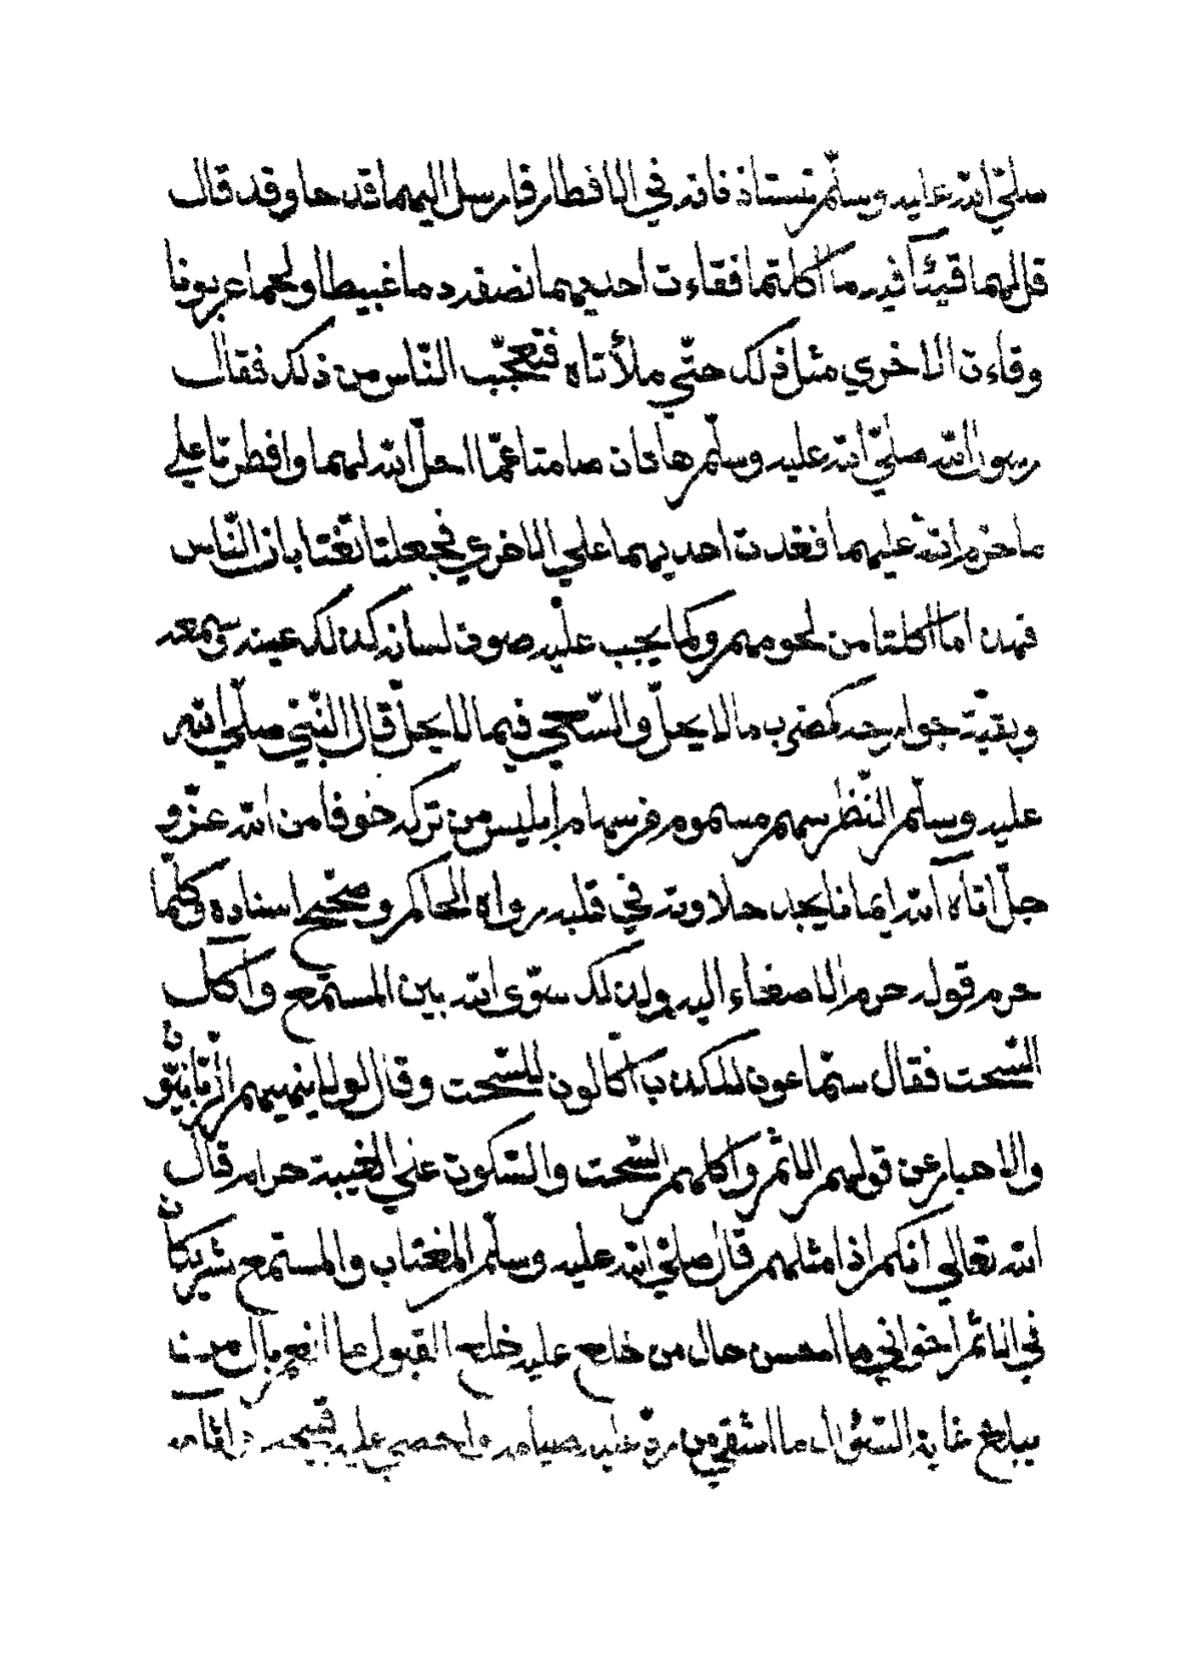 صلّي الله عليه وسلّم تستاذنانه في الافطار فارسل اليهما قدحا وقد قال
قل لهما قيئآ فيه ما اكلتما فقاءت احديهما نصفه دما غبيطا ولحما عريونا
وقاءت الاخري مثل ذلك حتّي ملأتاه فتعجّب النّاس من ذلك فقال
رسول الله صلّي الله عليه وسلّم هاتان صامتا عمّا احلّ الله لهما وافطرتا علي
ما حرم الله عليهما فقدت احديهما علي الاخري فجعلتا تغتابان النّاس
فهذن اما اكلتا من لحومهم وكما يجب عليه صون لسانه كذلك عينه وسمعه
وبقية جوارحه كضرب ما لا يحلّ والسّعي فيما لا يحلّ قال النّبي صلّي الله
عليه وسلّم النّظر سهم مسموم من سهام ابليس من تركه خوفا من الله عزّ و
جلّ اتاه آلله ايمانا يجد حلاوته في قلبه رواه الحاكم وصحّح اسناده وكلّما
حرم قوله حرم الاصغاء اليه ولذلك سوّى الله بين المستمع وآكل
السّحت فقال سمّاعون للكذب اكّالون للسّحت وقال لولا ينهيهم الرّبانيّون
والاحبار عن قولهم الاثم واكلهم السّحت والسّكوت علي الغيبة حرام قال
الله تعالي انكم اذا مثلهم قال صلّي الله عليه وسلّم المغتاب والمستمع شريكان
في الاثم اخواني ما احسن حال من خلع عليه خلع القبول ما انعم بال من
يبلغ غاية السّئوال ما اشقي من ردّ عليه صيامه واحصي عليه قبيحه